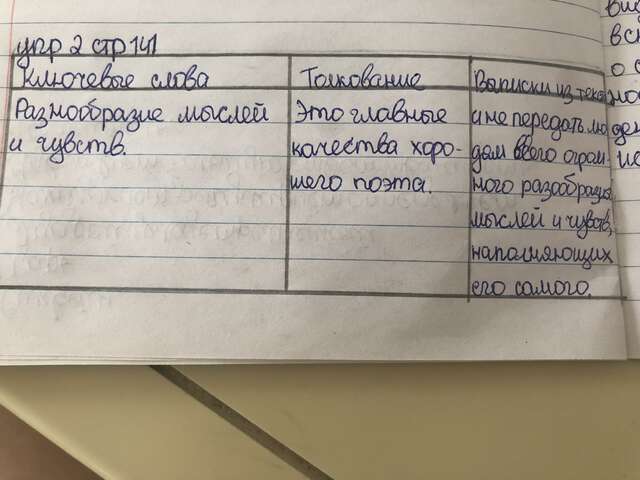 упр 2 стр 141
Ключевые слова
Толкование
Выписки из текста
Разнообразие мыслей
и чувств.
Это главные
качества хоро-
шего поэта.
и не передать лю
дям всего огром-
ного разообразия
мыслей и чувств,
наполняющих
его самого.